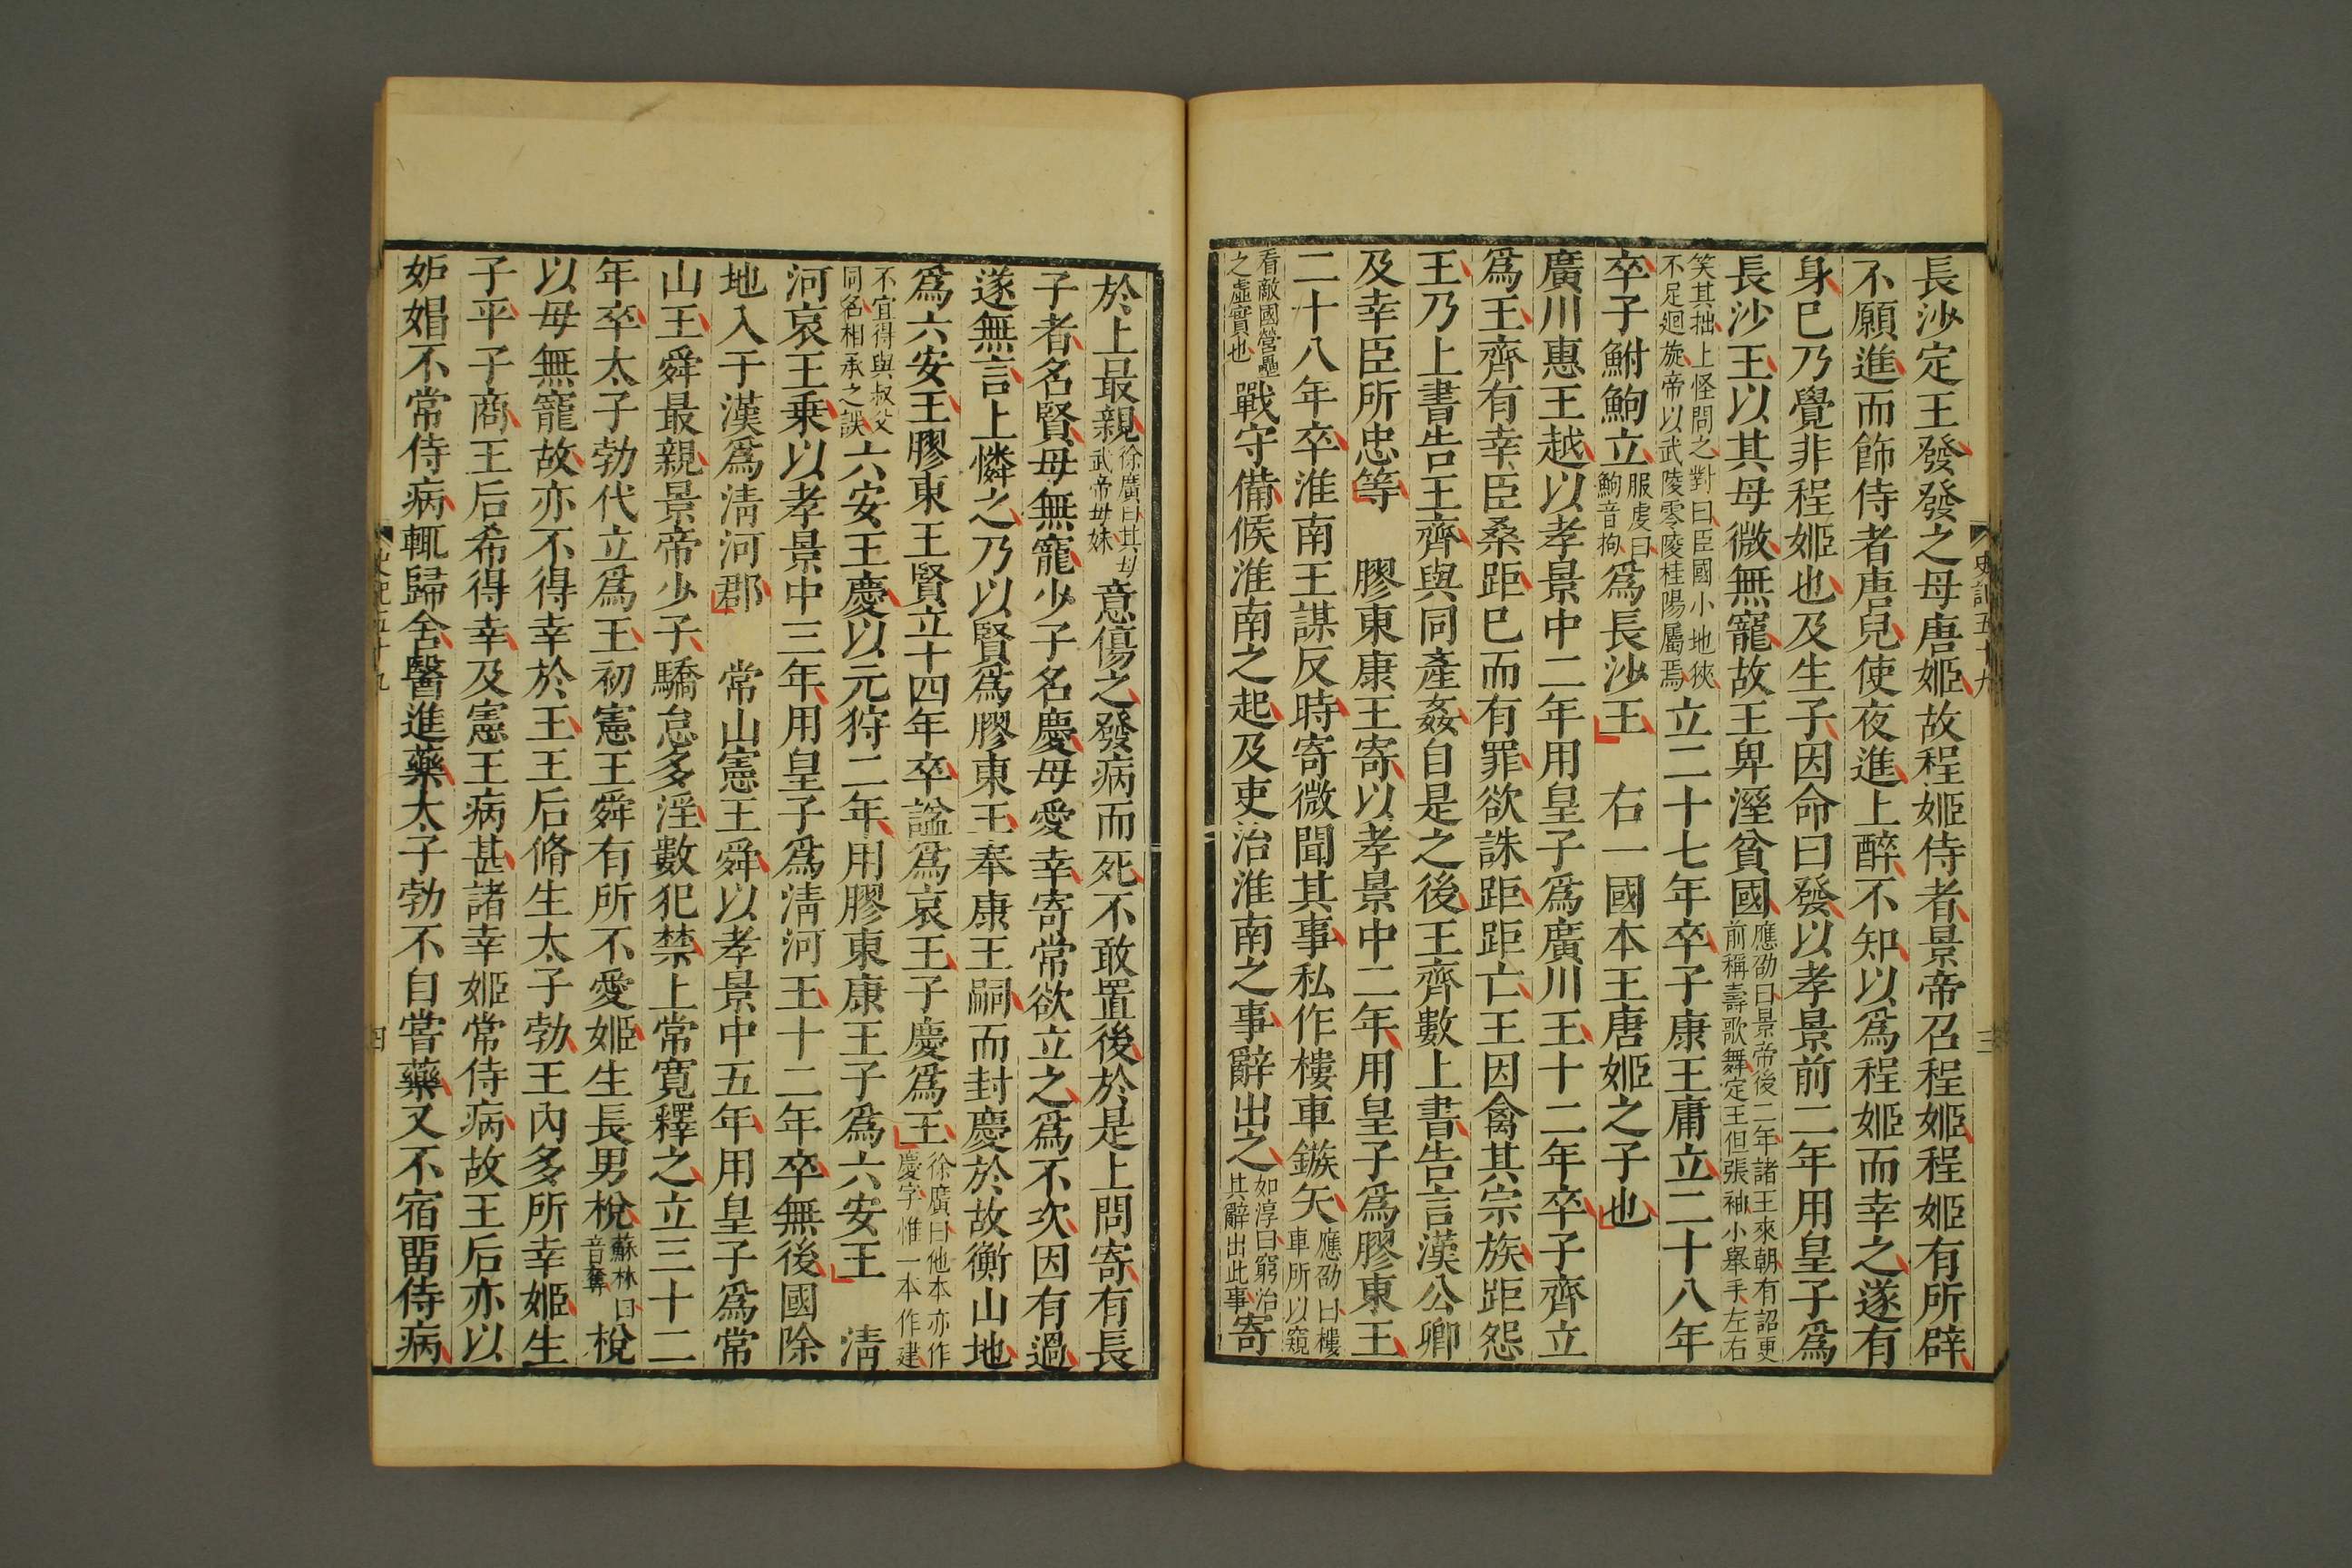 長沙定王發發之母唐姬故程姬侍者景帝召程姬程姬有所辟
不願進而飾侍者唐兒使夜進上醉不知以爲程姬而幸之遂有
身已乃覺非程姬也及生子因命曰發以孝景前二年用皇子爲
長沙王以其母微無寵故王卑溼貧國應劭曰景帝後二年諸王來朝有詔更前稱壽歌舞定王但張袖小舉手左右
笑其拙上怪問之對曰臣國小地狹不足迴旋帝以武陵零陵桂陽屬焉立二十七年卒子康王庸立二十八年
卒子鮒鮈立服虔曰鮈音拘爲長沙王　右一國本王唐姬之子也
廣川惠王越以孝景中二年用皇子爲廣川王十二年卒子齊立
爲王齊有幸臣桑距已而有罪欲誅距距亡王因禽其宗族距怨
王乃上書告王齊與同產姦自是之後王齊數上書告言漢公卿
及幸臣所忠等　膠東康王寄以孝景中二年用皇子爲膠東王
二十八年卒淮南王謀反時寄微聞其事私作樓車鏃矢應劭曰樓車所以窺
看敵國營壘之虛實也戰守備候淮南之起及吏治淮南之事辭出之如淳曰窮治其辭出此事寄
史記五十九
三
於上最親徐廣曰其母武帝母妹意傷之發病而死不敢置後於是上問寄有長
子者名賢母無寵少子名慶母愛幸寄常欲立之爲不次因有過
遂無言上憐之乃以賢爲膠東王奉康王嗣而封慶於故衡山地
爲六安王膠東王賢立十四年卒謚爲哀王子慶爲王徐廣曰他本亦作慶字惟一本作建
不宜得與叔父同名相承之誤六安王慶以元狩二年用膠東康王子爲六安王　淸
河哀王乗以孝景中三年用皇子爲淸河王十二年卒無後國除
地入于漢爲淸河郡　常山憲王舜以孝景中五年用皇子爲常
山王舜最親景帝少子驕怠多淫數犯禁上常寬釋之立三十二
年卒太子勃代立爲王初憲王舜有所不愛姬生長男梲蘇林曰音奪梲
以母無寵故亦不得幸於王王后脩生太子勃王內多所幸姬生
子平子商王后希得幸及憲王病甚諸幸姬常侍病故王后亦以
妒媢不常侍病輒歸舍醫進藥太子勃不自嘗藥又不宿畱侍病
史記五十九
四